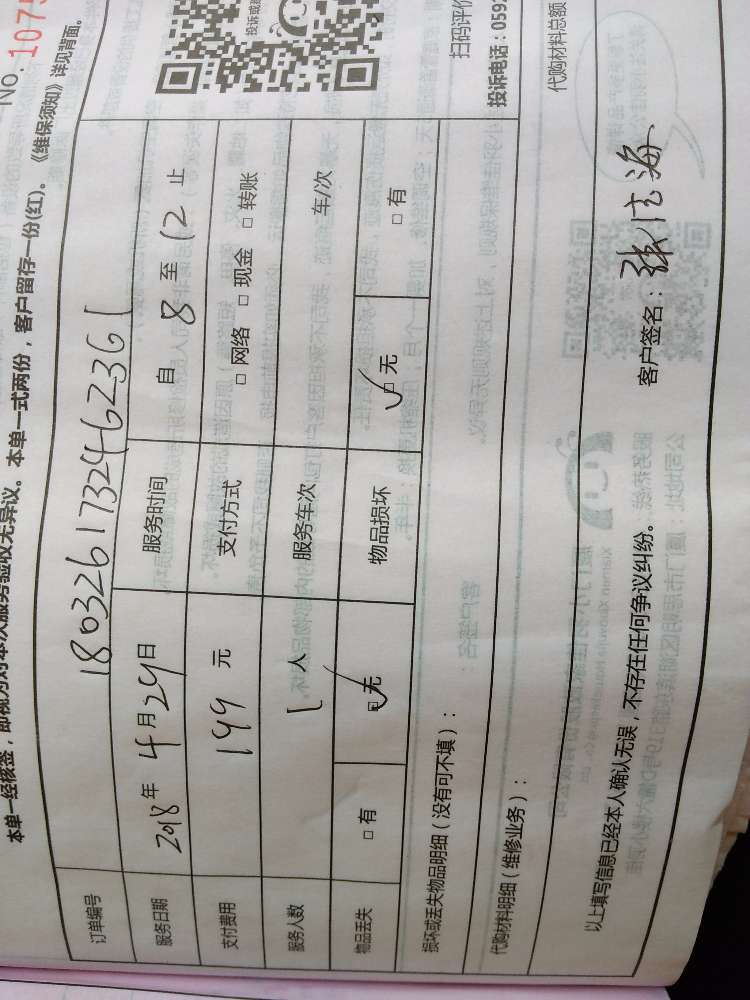 NO. 1075
本单一经核签，即视为对本次服务验收无异议。本单一式两份，客户留存一份(红)。《维保须知》详见背面。
订单编号 180326173246236 1
服务日期 2018 年 4 月 29 日 服务时间 自 8 至 12 止
支付费用 199 元 支付方式 □ 网络 □ 现金 □ 转账
服务人数 1 人 服务车次 车/次
物品丢失 □ 有 □ 无 物品损坏 □ 无 □ 有
损坏或丢失物品明细（没有可不填）：
代购材料明细（维修业务）：
扫码评价
投诉电话：0592
代购材料总额
以上填写信息已经本人确认无误，不存在任何争议纠纷。 客户签名：